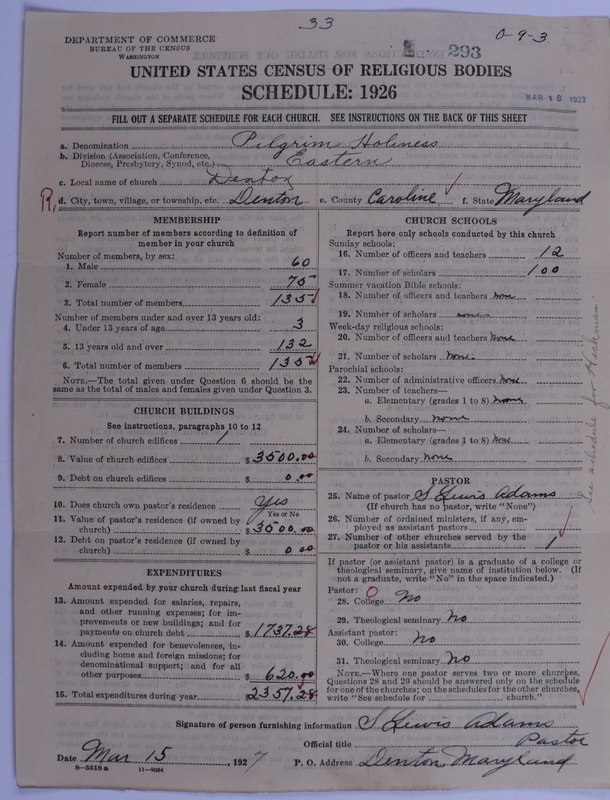 33
0-9-3
DEPARTMENT OF COMMERCE
BUREAU OF THE CENSUS
WASHINGTON
293
UNITED STATES CENSUS OF RELIGIOUS BODIES
SCHEDULE: 1926
MAR 18 1927
FILL OUT A SEPARATE SCHEDULE FOR EACH CHURCH. SEE INSTRUCTIONS ON THE BACK OF THIS SHEET
a. Denomination Pilgrim Holiness
b. Division (Association, Conference, Diocese, Presbytery, Synod, etc.) Eastern
c. Local name of church Denton
R, d. City, town, village, or township, etc. Denton e. County Caroline f. State Maryland
MEMBERSHIP
Report number of members according to definition of
member in your church
Number of members, by sex:
1. Male 60
2. Female 75
3. Total number of members 135
Number of members under and over 13 years old:
4. Under 13 years of age 3
5. 13 years old and over 132
6. Total number of members 135
NOTE.—The total given under Question 6 should be
same as the total of males and females given under Question 3.
CHURCH BUILDINGS
See instructions, paragraphs 10 to 12
7. Number of church edifices 1
8. Value of church edifices $3500.00
9. Debt on church edifices $0.00
10. Does church own pastor's residence Yes
Yes or No
11. Value of pastor's residence (if owned by
church) $3500.00
12. Debt on pastor's residence (if owned by
church) $0 00
EXPENDITURES
Amount expended by your church during last fiscal year
13. Amount expended for salaries, repairs,
and other running expenses; for im-
provements or new buildings; and for
payments on church debt $1737.28
14. Amount expended for benevolences, in-
cluding home and foreign missions; for
denominational support; and for all
other purposes $620.00
15. Total expenditures during year $2357.28
CHURCH SCHOOLS
Report here only schools conducted by this church
Sunday schools:
16. Number of officers and teachers 12
17. Number of scholars 100
Summer vacation Bible schools:
18. Number of officers and teachers none
19. Number of scholars none
Week-day religious schools:
20. Number of officers and teachers None
21. Number of scholars None
Parochial schools:
22. Number of administrative officers None
23. Number of teachers—
a. Elementary (grades 1 to 8) None
b. Secondary None
24. Number of scholars—
a. Elementary (grades 1 to 8) None
b. Secondary None
PASTOR
25. Name of pastor S Lewis Adams
(If church has no pastor, write "None")
26. Number of ordained ministers, if any, em-
ployed as assistant pastors
27. Number of other churches served by the
pastor or his assistants 1
If pastor (or assistant pastor) is a graduate of a college or
theological seminary, give name of institution below. (If
not a graduate, write "No" in the space indicated.)
Pastor: 0
28. College No
29. Theological seminary No
Assistant pastor:
30. College No
31. Theological seminary No
NOTE.—Where one pastor serves two or more churches,
Questions 28 and 29 should be answered only on the schedule
for one of the churches; on the schedules for the other churches,
write "See schedule for church."
See schedule for Hickman
Signature of person furnishing information S Lewis Adams
Official title Pastor
Date Mar 15, 1927 P. O. Address Denton Maryland
8—5518 a 11—9054